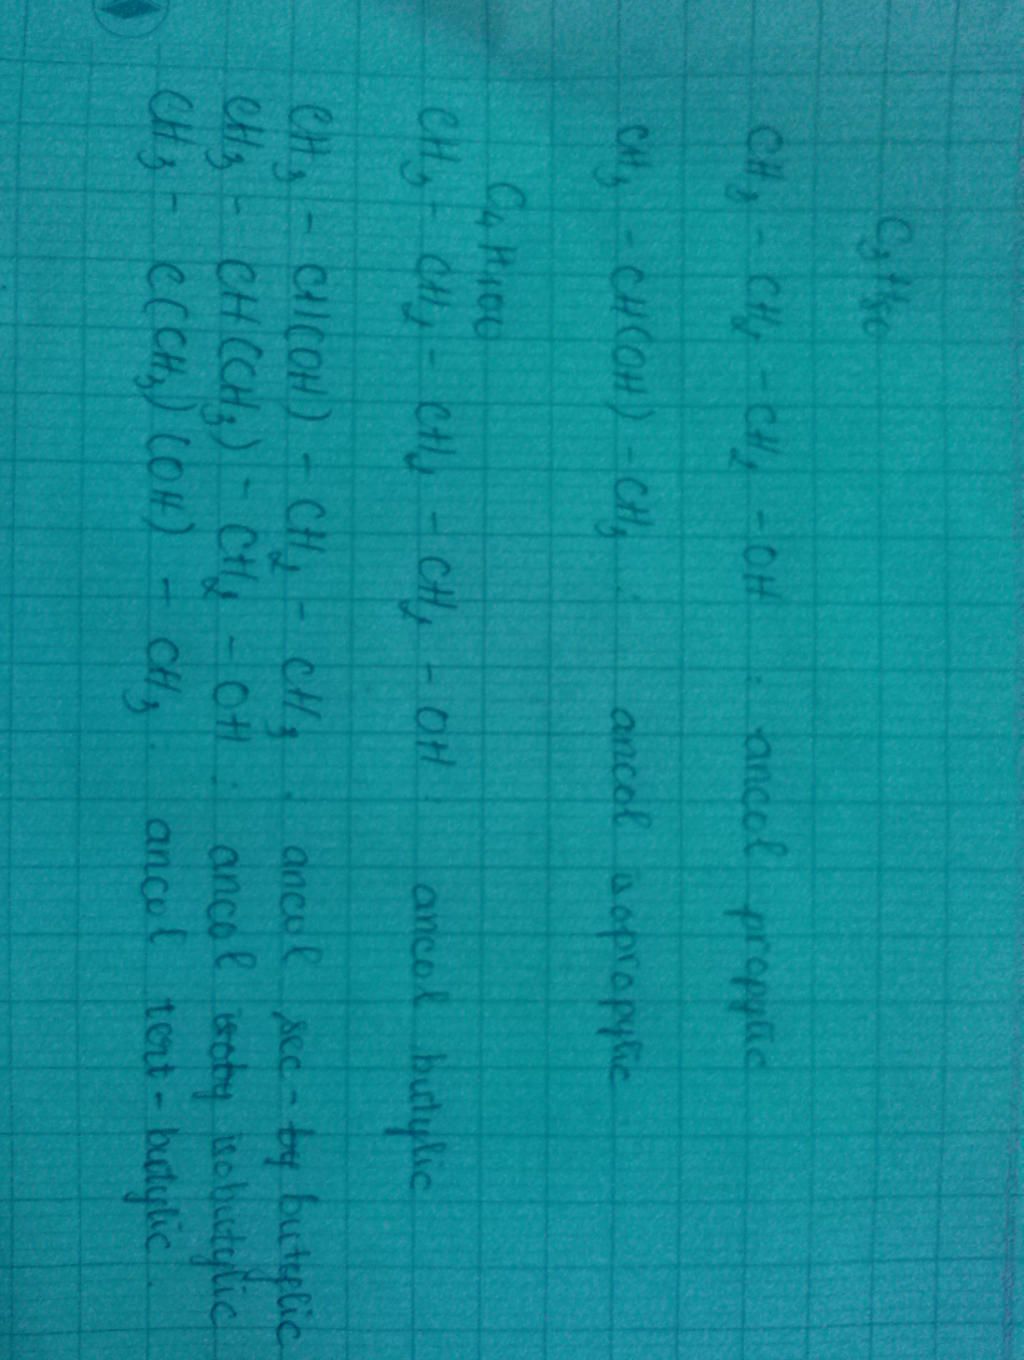 C3H8O
CH3 - CH2 - CH2 - OH : ancol propylic
CH3 - CH(OH) - CH3 : ancol isopropylic
C4H10O
CH3 - CH2 - CH2 - CH2 - OH : ancol butylic
CH3 - CH(OH) - CH2 - CH3 : ancol sec - by butylic
CH3 - CH(CH3) - CH2 - OH : ancol isoby isobutylic
CH3 - C(CH3)(OH) - CH3 : ancol tert - butylic.